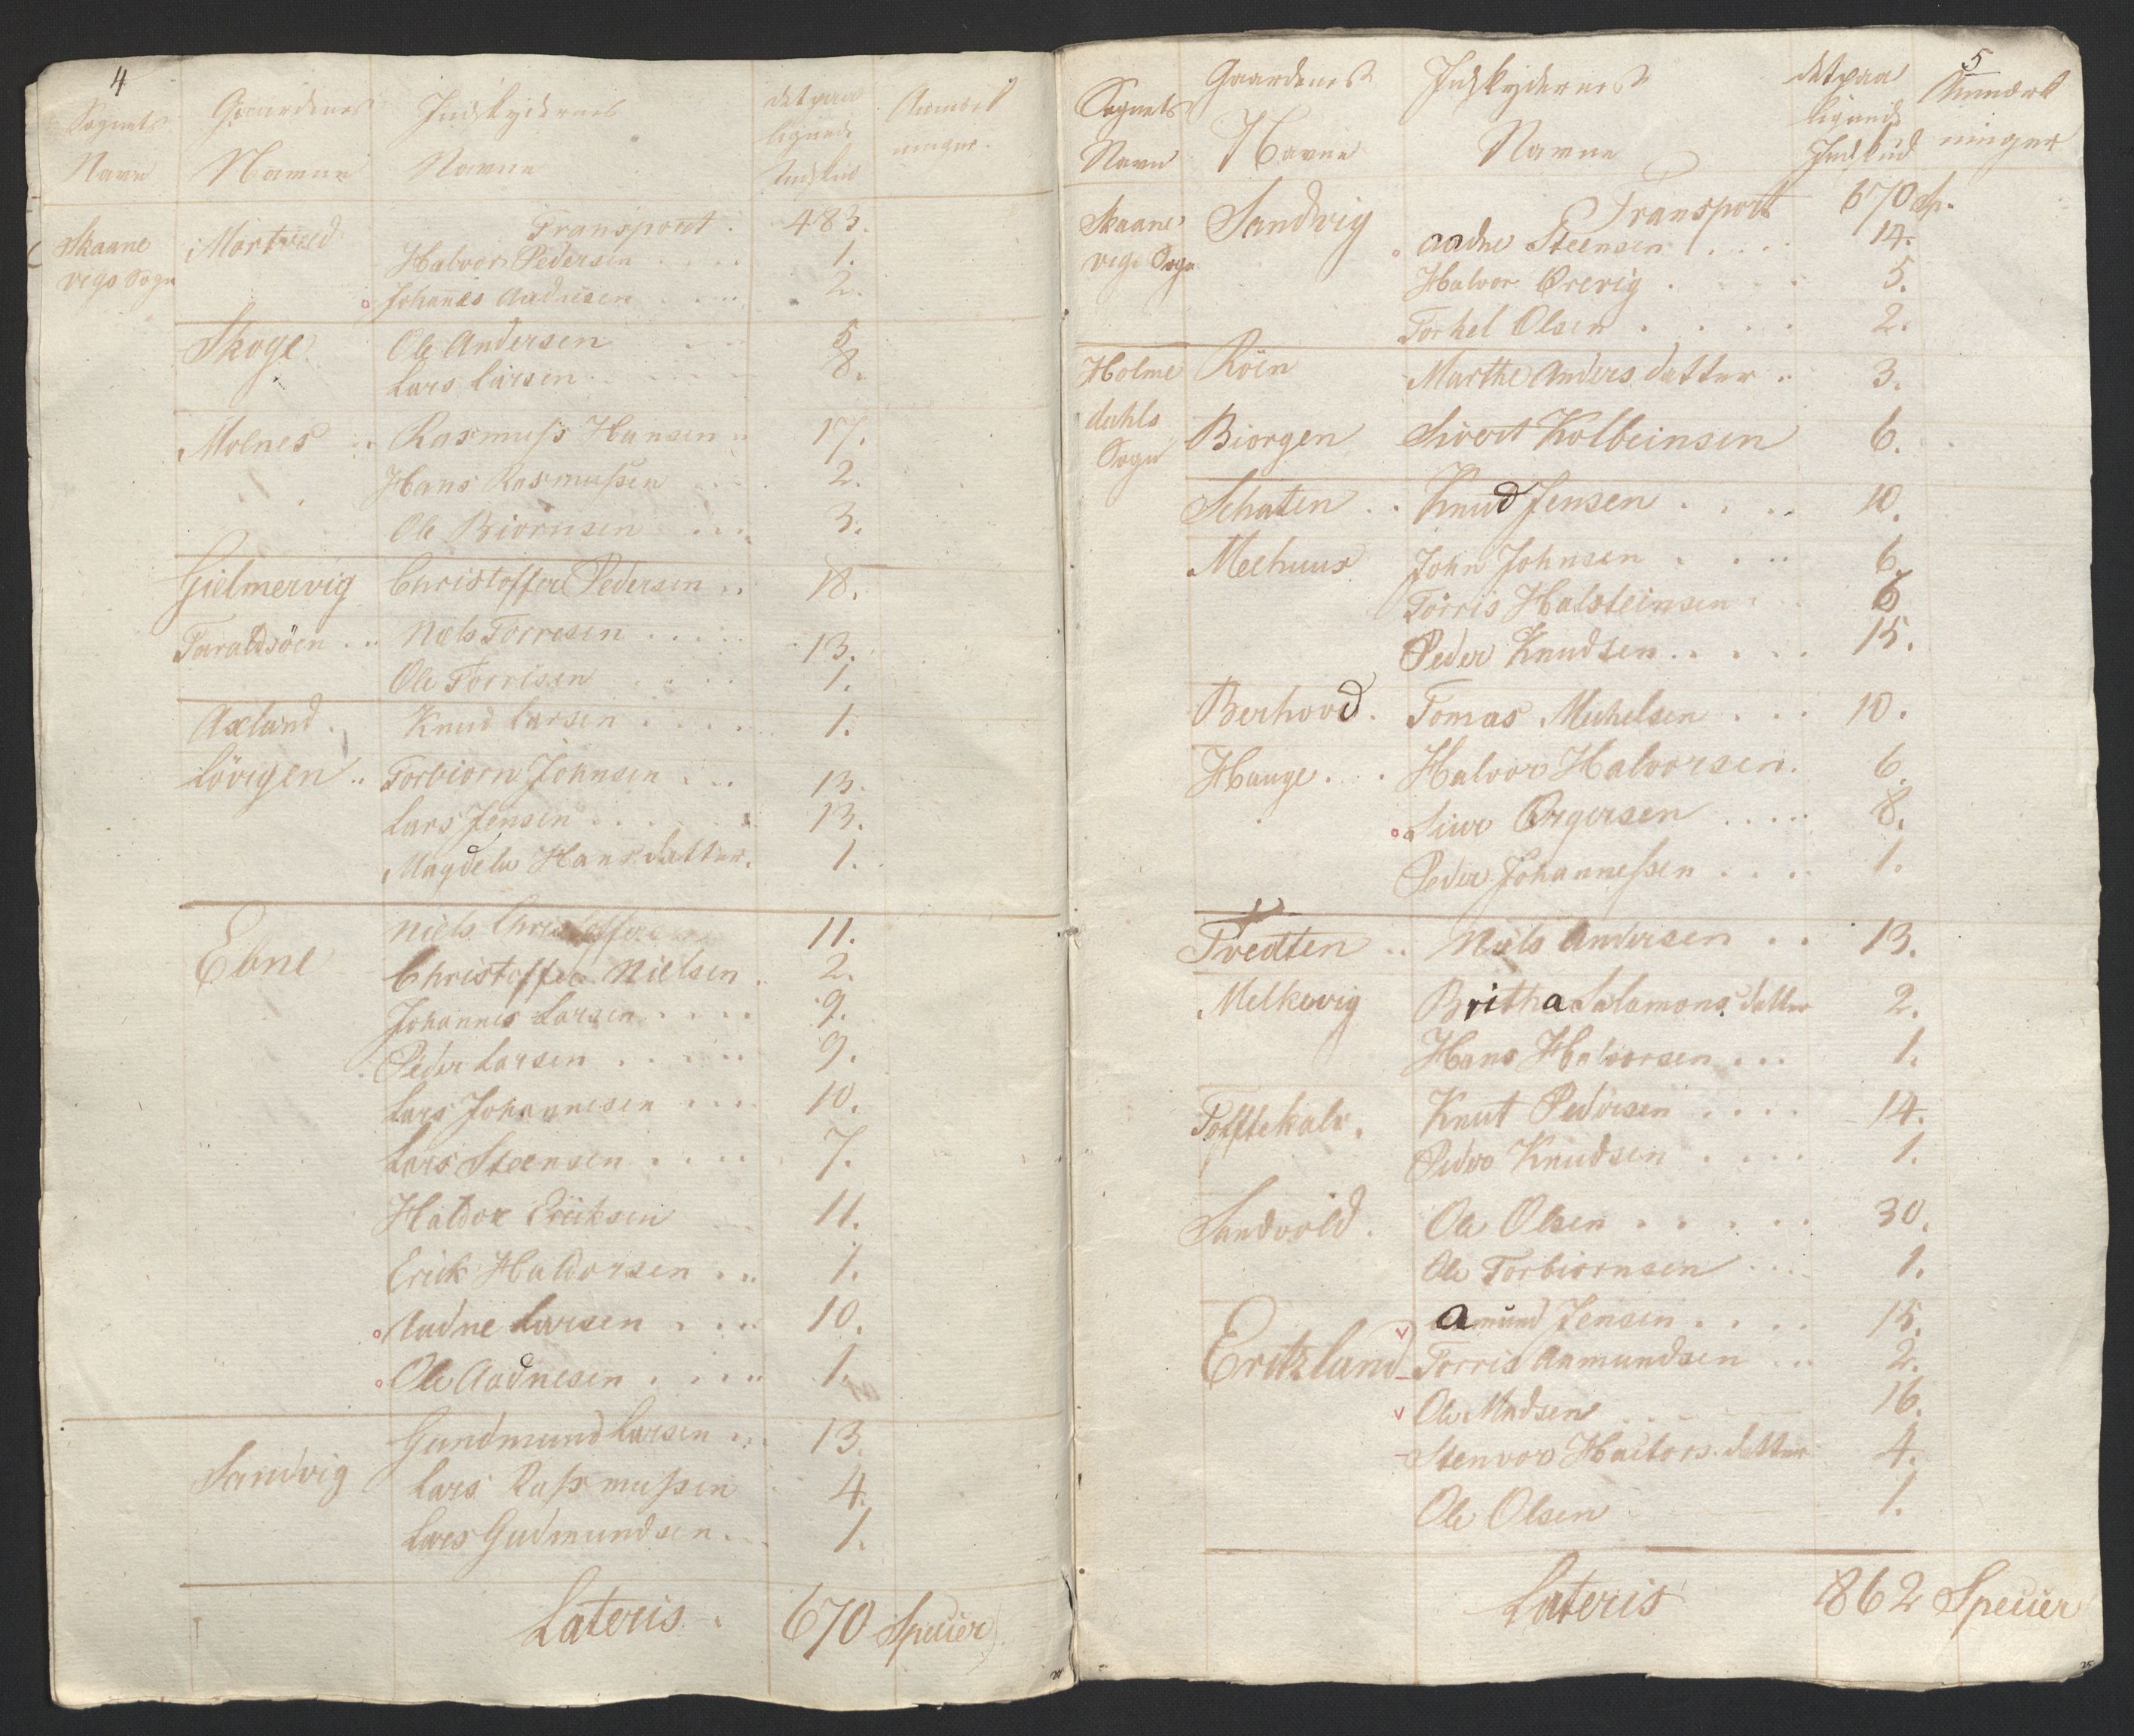 4
Sognets Gaardenes Indskydernes det paa Anmærk
Navn Navne Navne lignede ninger.
Indskud
Transport . 483.
Skaane Mortveed Halvor Pedersen . . . . 1.
vigs Sogn Johanes Aadnesen . . . . 2.
Skoge Ole Andersen . . 5
Lars Larsen . . . . . 8.
Molnes .. Rasmuss Hansen .. 17.
Hans Rasmussen . . . 2.
Ole Biørnsen . . . 3.
Gielmervig Christoffer Pedersen .. 18.
Taraldsöen . .. Niels Torresen . . . . . 13.
Ole Törrisen . . . . 1.
Axland . Knud Larsen . . . . . 1.
Lövigen .. Torbiörn Johnsen . . . 13.
Lars Jensen . . . . . 13.
Magdela Hans datter. 1.
Ebne Niels 11.
Christoffer Nielsen . 2.
Johannes Larsen . . . . 9.
Peder Larsen . . . . . 9.
Lars Johannesen . . . . 10.
Lars Steensen . . . . 7.
Haldor Ericksen 11.
Erick Haldorsen . .. 1.
Aadne Larsen . . . . 10.
Ole Aadnesen . . . . . 1.
Sandvig Gundmund Larsen .. 13.
Lars Rassmussen 4.
Lars Gudmundsen . . 1.
Lateris . 670 Specier
5
Sognets Gaardenes Indskydernes det paa Anmærk
Navn Navne Navne lignede ninger
Indskud
Transport 670 Sp.
Skaane Sandvig Aadne Steensen . . . . 14.
vigs Sogn Halvor Ørevig . . . . 5.
Torkel Olsen . . . . 2.
Holme Röen Marthe Anders datter . 3.
dahls Biorgen Sivert Kolbeinsen 6.
Sogn
Schaten . . Knud Jensen . . . . 10.
Meehuus John Johnsen . . . . 6.
Törris Halsteinsen . . 6
Peder Knudsen . . . . . 15.
Berhovd . Tomas Michelsen . . . 10.
Hauge . . . Halvor Halvorsen . 6.
Siur Brgersen . . . . . 8.
Peder Johannessen . . . . 1.
Tvedten .. Niels Andersen . . 13.
Melkevig Britha Salamons datter 2.
Hans Halvorsen . . . 1.
Tofftekalv . Knut Pedersen . . . . 14.
Peder Knudsen . . . . 1.
Sandvold . Ole Olsen . . . . . 30.
Ole Torbiörnsen . . . . 1.
Amund Jensen . . . . 15.
Eritzland Torris Anmundsen . . . 2.
Ole Madsen 16.
Stenvor Haltors datter 4.
Ole Olsen 1.
Lateris 862 Specier